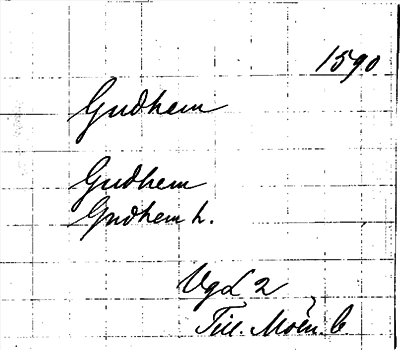 1590
Gudhem
Gudhem
Gudhem h.
Vgl 2
Till. Moln. C.